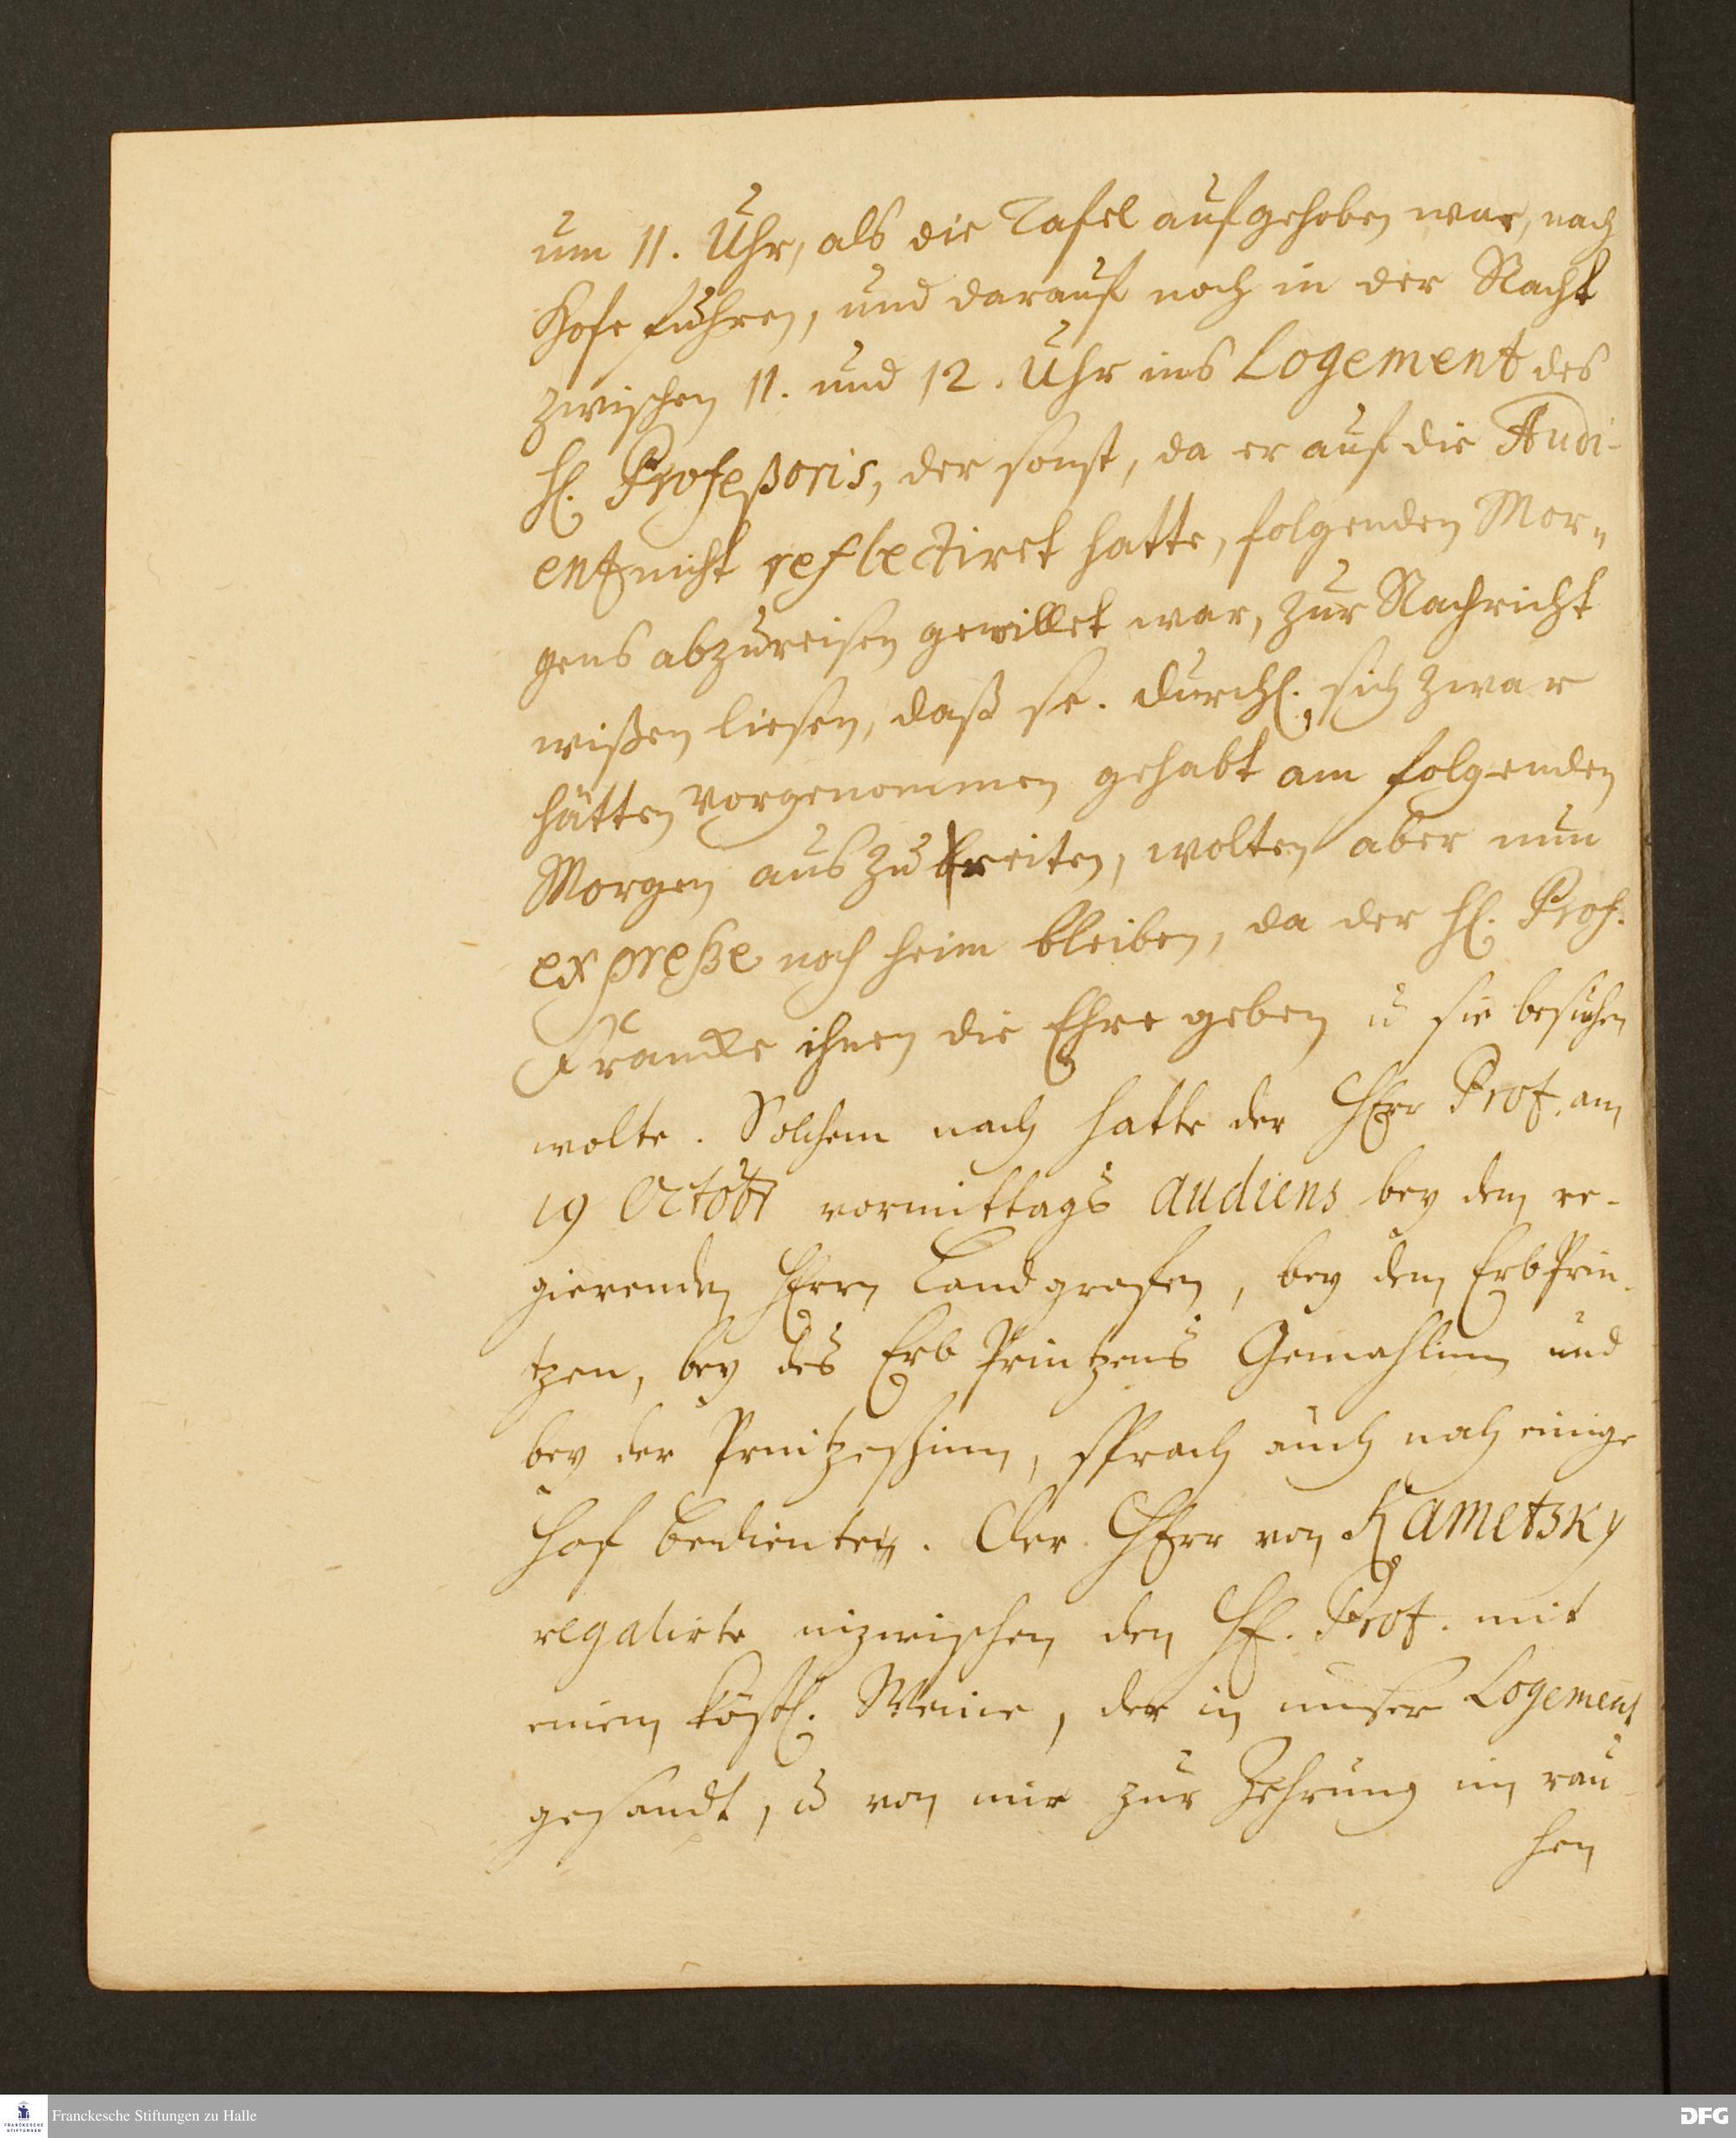 um 11. Uhr, als die Tafel aufgehoben war, nach
Hofe fuhren, und darauf noch in der Nacht
zwischen 11. und 12. Uhr ins Logement des
H. Profeßoris, der sonst, da er auf die Audi-
entz nicht reflectiret hatte, folgenden Mor-
gens abzureisen gewillet war, zur Nachricht
wißen liesen, daß se. Durchl. sich zwar
hätten vorgenommen gehabt am folgenden
Morgen auszureiten, wolten aber nun
expreße noch heim bleiben, da der H. Prof.
Francke ihnen die Ehre geben u sie besuchen
wolte. Solchem nach hatte der Herr Prof. am
19 Octobr vormittags audiens bey dem re-
gierenden Herrn Landgrafen, bey dem ErbPrin-
tzen, bey des Erb Printzens Gemahlinn und
bey der Printzeßinn, sprach auch noch einige
Hof bedienten. Der Herr von Kametsky
regalirte inzwischen den H. Prof. mit
einem köstl. Weine, der in unser Logement
gesandt, u von mir zur Zehrung im rau-
hen
Franckesche Stiftungen zu Halle
FRANCKESCHE
STIFTUNGEN
DFG